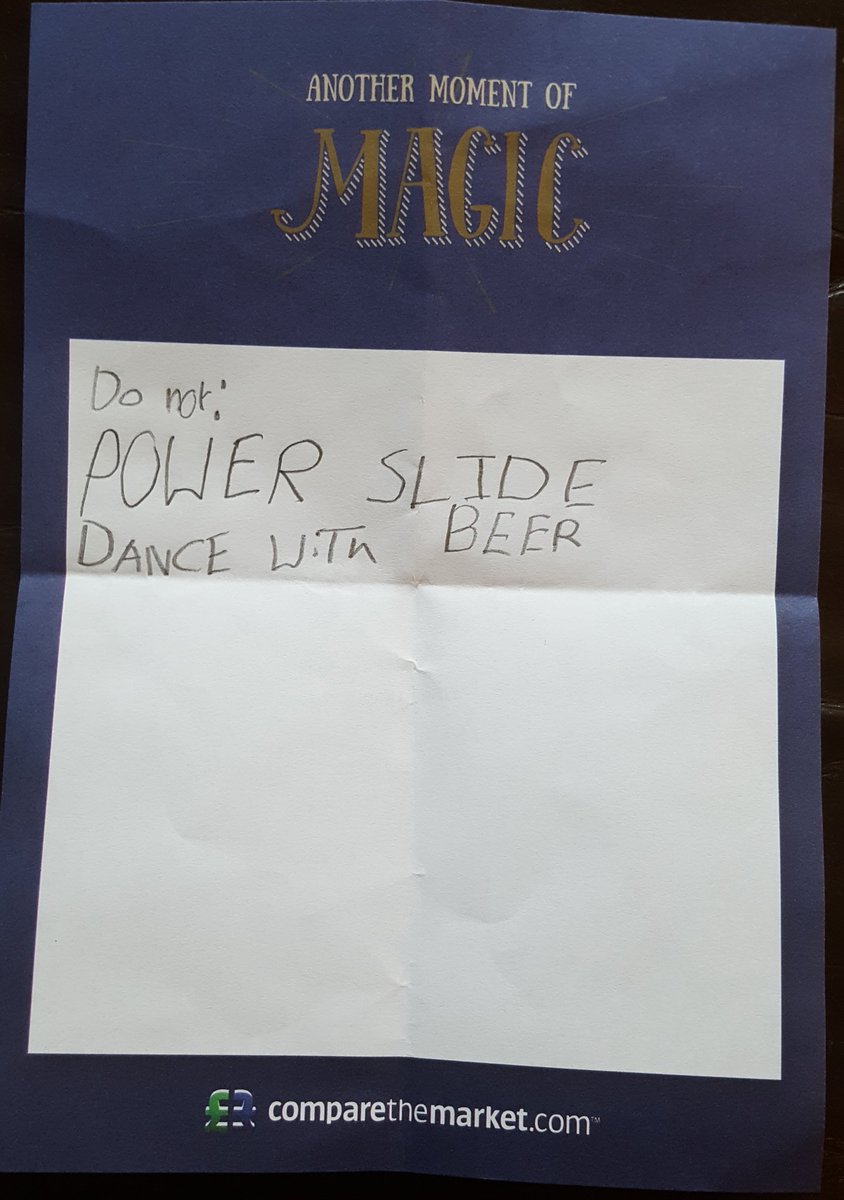 ANOTHER MOMENT OF
MAGIC
Do not:
POWER SLIDE
DANCE WiTh BEER
comparethemarket.com™